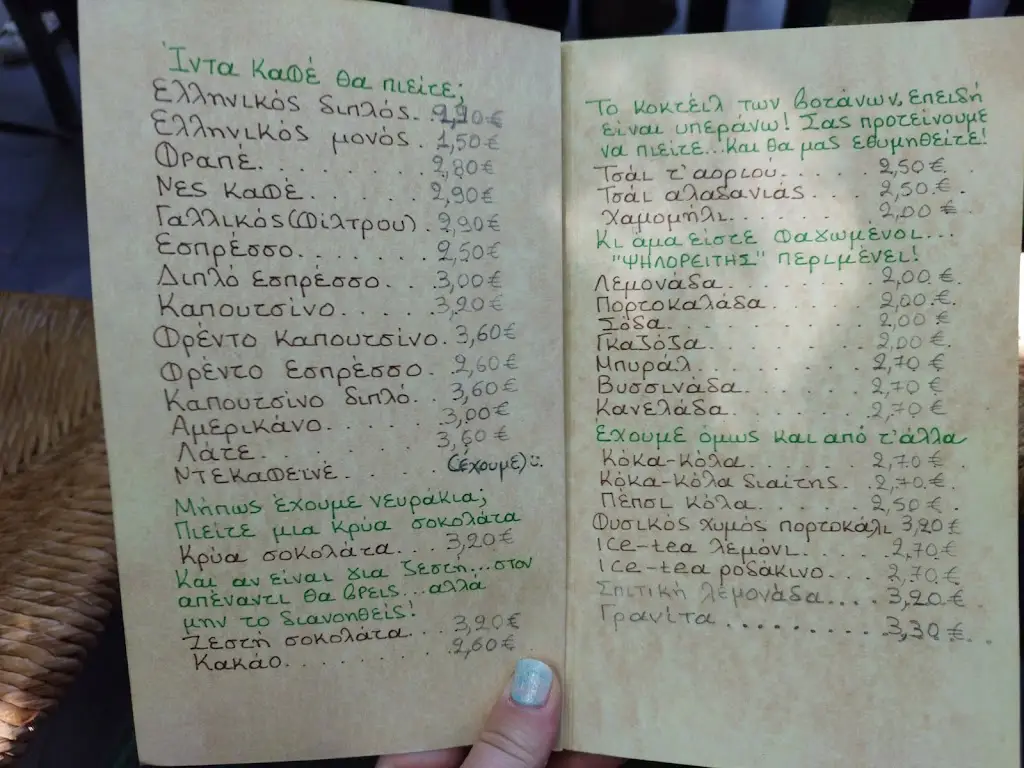 Ίντα καφέ θα πιείτε;
Ελληνικός διπλός..2,20€
Ελληνικός μονός. 1,50€
Φραπέ. . . . . . . 2,80€
Νες καφέ. . . . . . 2,90€
Γαλλικός(Φίλτρου). 2,90€
Εσπρέσσο. . . . . . . 2,50€
Διπλό εσπρέσσο. . . 3,00€
Καπουτσίνο. . . . . . 3,20€
Φρέντο καπουτσίνο. 3,60€
Φρέντο εσπρέσσο. . 2,60€
Καπουτσίνο διπλό. . 3,60€
Αμερικάνο. . . . . . 3,00€
Λάτε. . . . . . . . . 3,60€
Ντεκαφεϊνέ. . . . . (έχουμε)
Μήπως έχουμε νευράκια;
Πιείτε μια κρύα σοκολάτα
Κρύα σοκολάτα. . . 3,20€
Και αν είναι για ζεστή...στον
απέναντι θα βρεις...αλλά
μην το διανοηθείς!
Ζεστή σοκολάτα. . . 3,20€
Κακάο. . . . . . . . . 2,60€
Το κοκτέιλ των βοτάνων, επειδή
είναι υπεράνω! Σας προτείνουμε
να πιείτε...και θα μας εθυμηθείτε!
Τσάι τ'αοριού. . . . . . 2,50€
Τσάι αλαδανιάς. . . . 2,50€
Χαμομήλι. . . . . . . . 2,00€
Κι άμα είστε φαχωμένοι...
"ΨΗΛΟΡΕΙΤΗΣ" περιμένει!
Λεμονάδα. . . . . . . . 2,00€
Πορτοκαλάδα. . . . . . 2,00€
Σόδα. . . . . . . . . . 2,00€
Γκαζόζα. . . . . . . . . 2,00€
Μπυράλ. . . . . . . . . 2,70€
Βυσσινάδα. . . . . . . 2,70€
Κανελάδα. . . . . . . . 2,70€
Έχουμε όμως και από τ'άλλα
Κόκα-Κόλα. . . . . . . 2,70€
Κόκα-Κόλα διαίτης. . 2,70€
Πέπσι Κόλα. . . . . . . 2,50€
Φυσικός χυμός πορτοκάλι 3,20€
Ice-tea λεμόνι. . . . . 2,70€
Ice-tea ροδάκινο. . . 2,70€
Σπιτική λεμονάδα.... 3,20€
Γρανίτα......... 3,30€